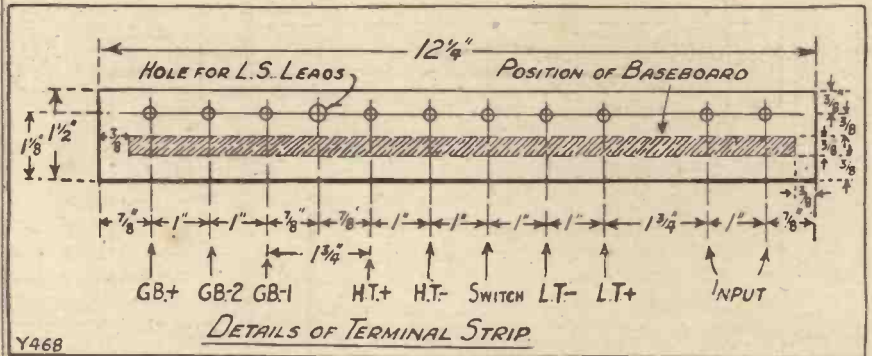 12¼"
HOLE FOR L.S. LEADS
POSITION OF BASEBOARD
1½"
1⅛"
3/8
3/8
3/8
3/8
3/8
3/8
⅞" 1" 1" ⅞" ⅞" 1" 1" 1" 1" 1¾" 1" ⅞"
1¾"
GB.+ GB.-2 GB.-1 H.T.+ H.T.- SWITCH L.T.- L.T.+ INPUT
DETAILS OF TERMINAL STRIP.
Y468